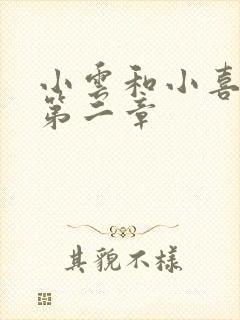 小雲和小喜
第二章
其貌不樣